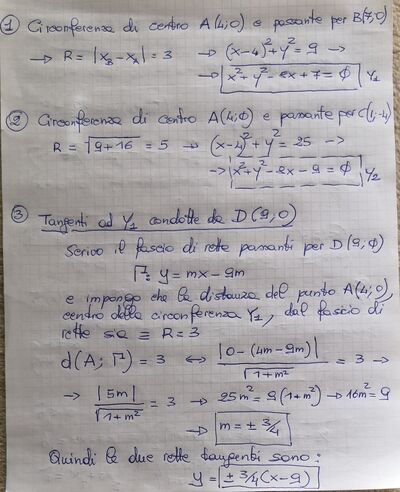 ① Circonferenza di centro A(4;0) e passante per B(7;0)
→ R = |x_B - x_A| = 3 → (x-4)² + y² = 9 →
→ x² + y² - 8x + 7 = 0 γ₁
② Circonferenza di centro A(4;0) e passante per C(1;-4)
R = √(9+16) = 5 → (x-4)² + y² = 25 →
→ x² + y² - 8x - 9 = 0 γ₂
③ Tangenti ad γ₁ condotte da D(9;0)
Scrivo il fascio di rette passanti per D(9;0)
Γ: y = mx - 9m
e impongo che la distanza del punto A(4;0),
centro della circonferenza γ₁, dal fascio di
rette sia = R = 3
d(A; Γ) = 3 ⟺ |0 - (4m - 9m)| / √(1+m²) = 3 →
→ |5m| / √(1+m²) = 3 → 25m² = 9(1+m²) → 16m² = 9
→ m = ± 3/4
Quindi le due rette tangenti sono:
y = ± 3/4 (x-9)